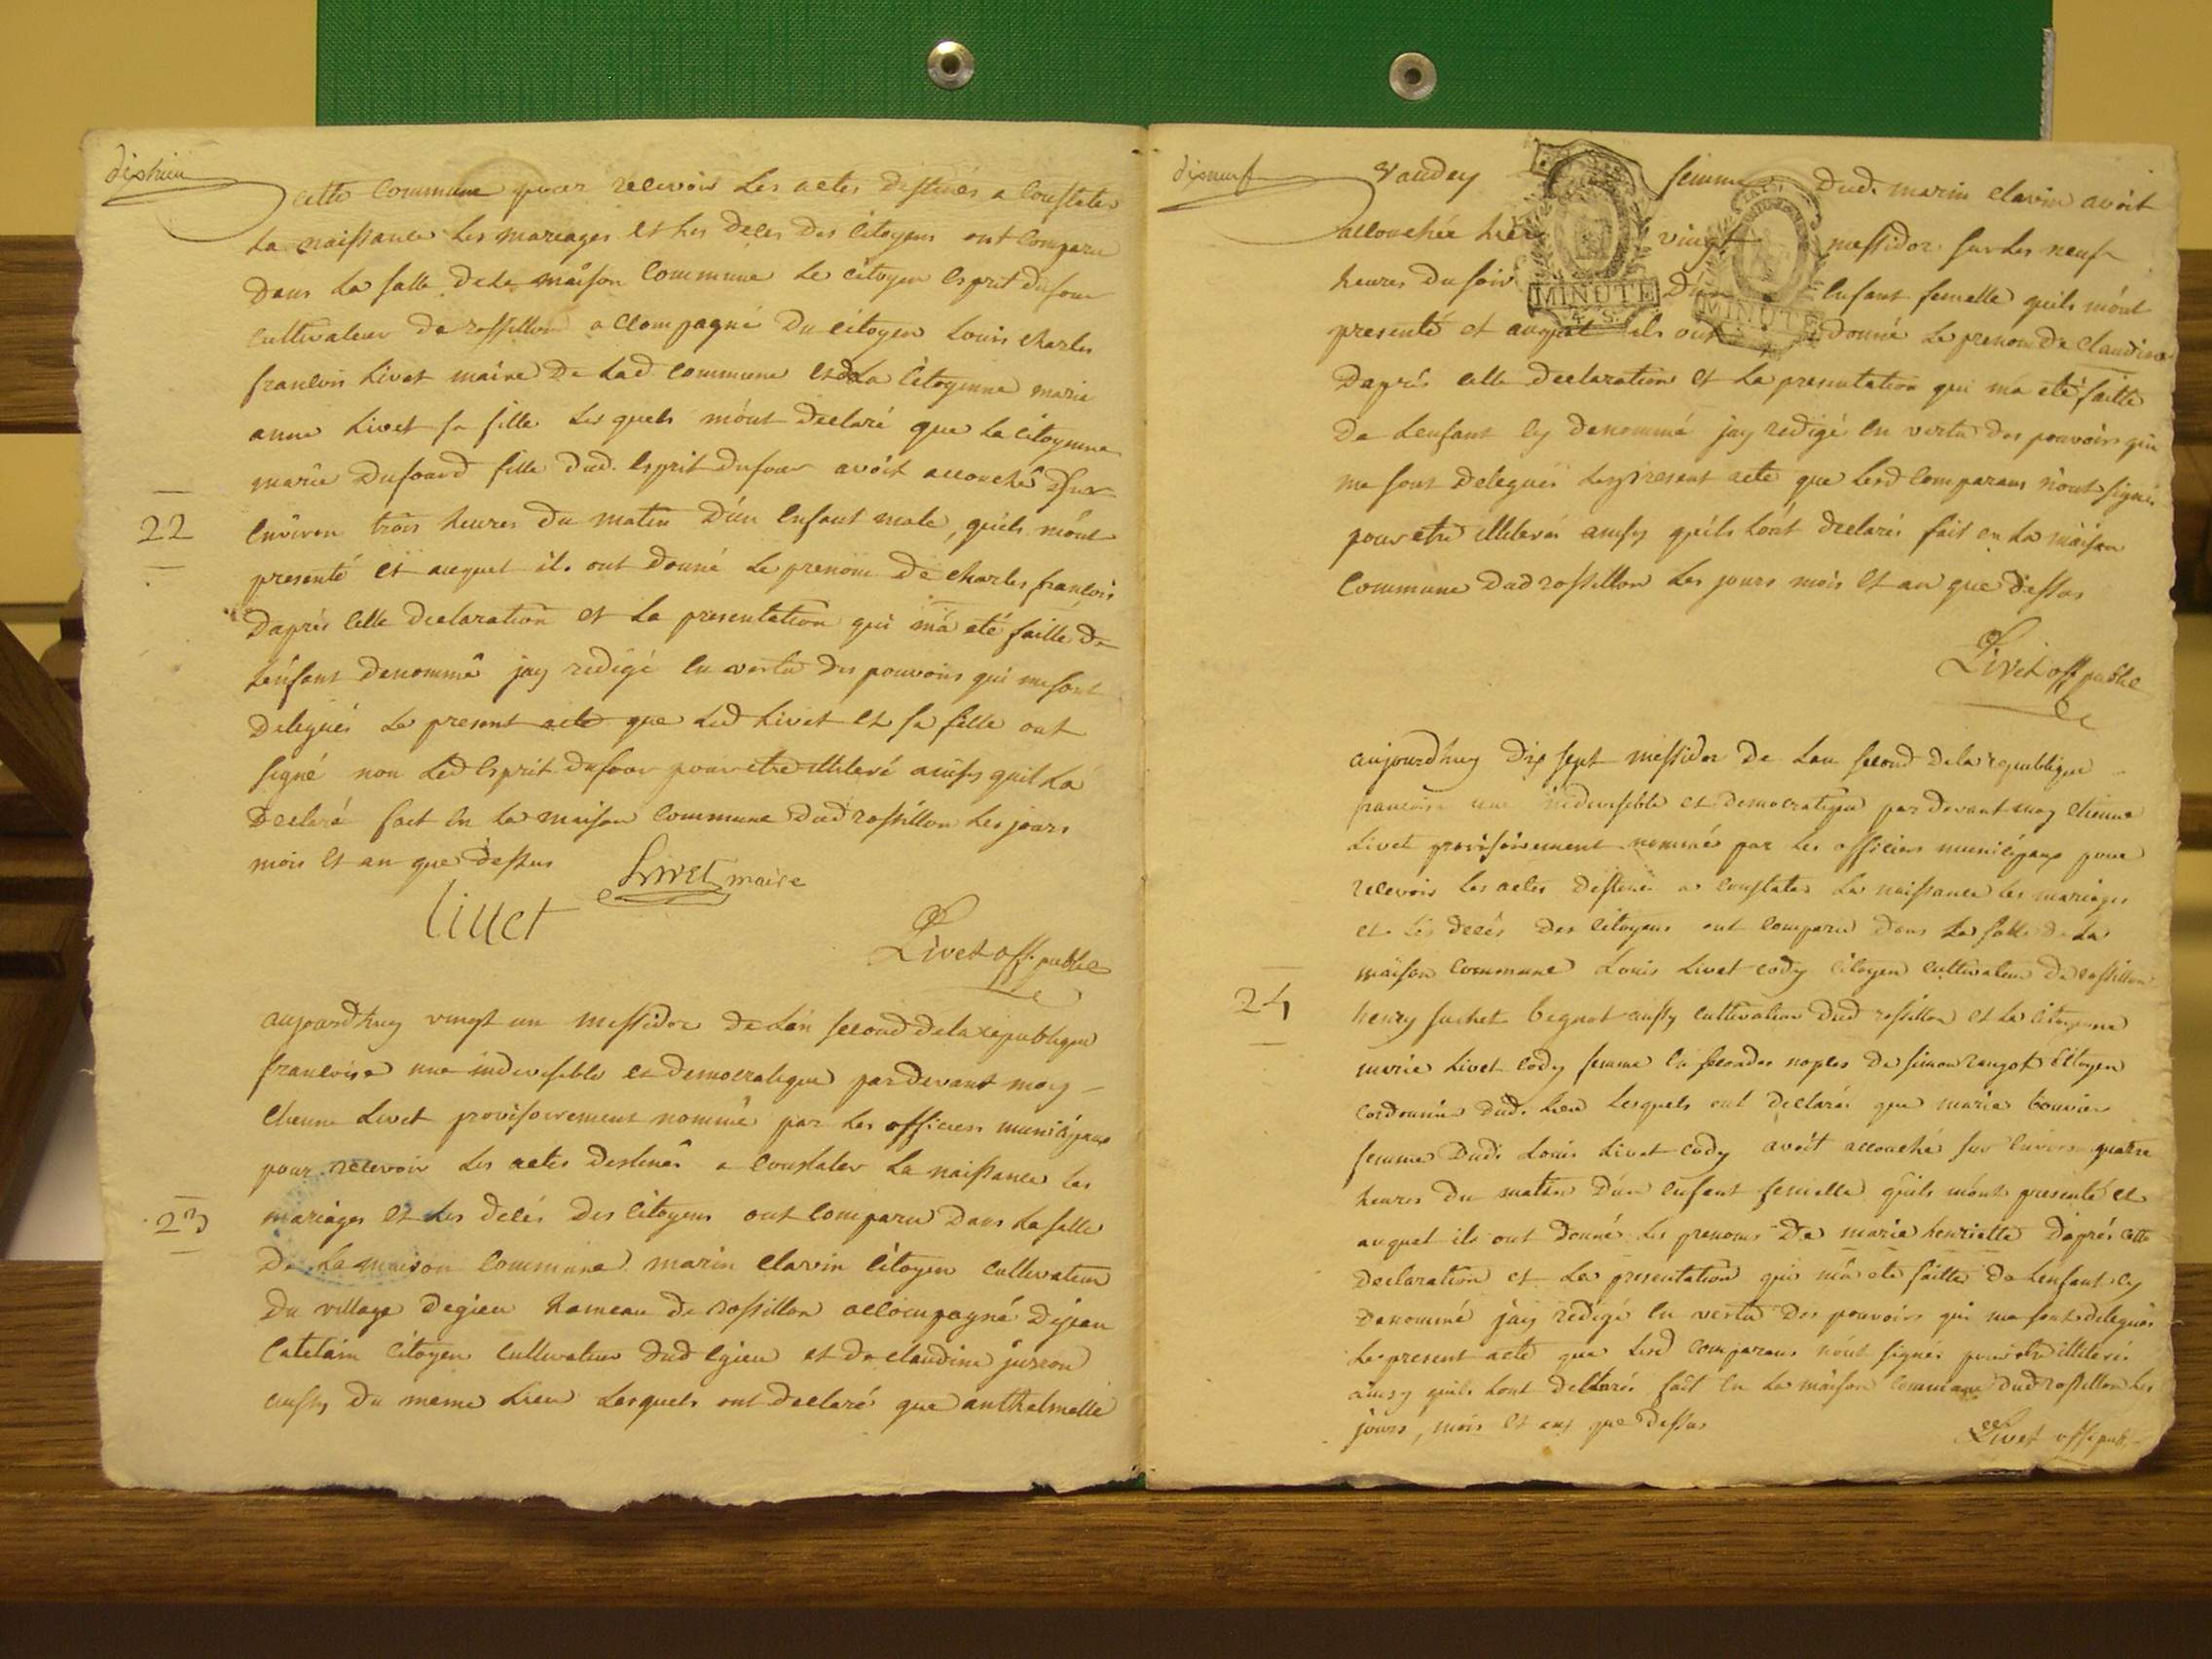 dixhuit
cette Commune pour recevoir Les actes destinés a Constater
La naissance Les mariages et Les deces des Citoyens ont Comparu
Dans La salle de la maison Commune Le citoyen Esprit dufour
Cultivateur de rossillon accompagné du citoyen Louis charles
françois Livet maire de Lad commune et de La Citoyenne marie
anne Livet sa fille Les quels m'ont declaré que La citoyenne
marie dufourd fille dud. Esprit dufour avoit accouché sur
22
Environ trois heures du matin d'un Enfant male, qu'ils m'ont
presenté et auquel ils ont donné Le prenom de charles françois
Daprés Cette declaration et La presentation qui m'a eté faitte de
L'enfant denommé jay redigé En vertu des pouvoirs qui me sont
Delegués Le present acte que Led Livet et sa fille ont
signé non Led Esprit dufour pour etre illiteré ainsy quil La
Declaré fait En La maison Commune dud rossillon Les jours
mois Et an que dessus
Livet maire
Livet
Livet off. public
aujourdhuy vingt un messidor de L'an second de la republique
françoise une indivisible et democratique pardevant moy
Etienne Livet provisoirement nommé par Les officiers municipaux
pour recevoir Les actes destinés a Constater La naissance Les
23
mariages Et Les decés des Citoyens ont Comparu Dans La salle
De La maison Commune marin clavin Citoyen Cultivateur
Du village degieu hameau de rossillon accompagné dejean
Catelain Citoyen Cultivateur dud Egieu et de claudine
aussy du meme Lieu Lesquels ont declaré que anthelmette
dixneuf
vaudey femme Dud. marin clavin avoit
accouchée hier vingt messidor sur Les neuf
heures du soir D'un Enfant femelle quils m'ont
MINUTE
MINUTE
presenté et auquel ils ont donné Le prenom de claudine
Daprés cette declaration Et La presentation qui ma eté faitte
De Lenfant Cy denommé jay redigé En vertu des pouvoirs qui
me sont delegués Le present acte que Lesd Comparans n'ont signés
pour etre illiterés ainsy qu'ils L'ont declarés fait en La maison
Commune dud rossillon Les jours mois Et an que dessus
Livet off public
aujourdhuy Dix sept messidor de Lan second de la republique
françoise une indivisible et democratique par devant moy Etienne
Livet provisoirement nommé par Les officiers municipaux pour
recevoir Les actes destinés a constater La naissance Les mariages
et Les decés des Citoyens ont comparu Dans La salle de La
maison Commune Louis Livet cody Citoyen cultivateur de rossillon
24
henry suchet aussy cultivateur dud rossillon et La Citoyenne
marie Livet Cody femme En secondes nopces de simon Citoyen
Cordonnier dud. Lieu Lesquels ont declarés que marie bouvier
femme dud. Louis Livet Cody avoit accouché sur Environ quatre
heures du matin d'un enfant femelle qu'ils m'ont presenté et
auquel ils ont donné Les prenoms de marie henriette d'aprés cette
Declaration et La presentation qui m'a eté faitte de L'enfant Cy
Denommé j'ay redigé En vertu des pouvoirs qui me sont delegués
Le present acte que Lesd comparans n'ont signés pour etre illiterés
ainsy quils Lont declarés fait En La maison commune dud rossillon Les
jours, mois Et an que dessus
Livet off. pub.